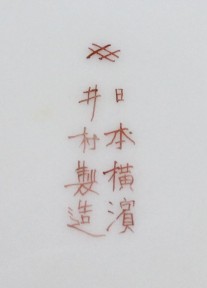 日本横濱
井村製造